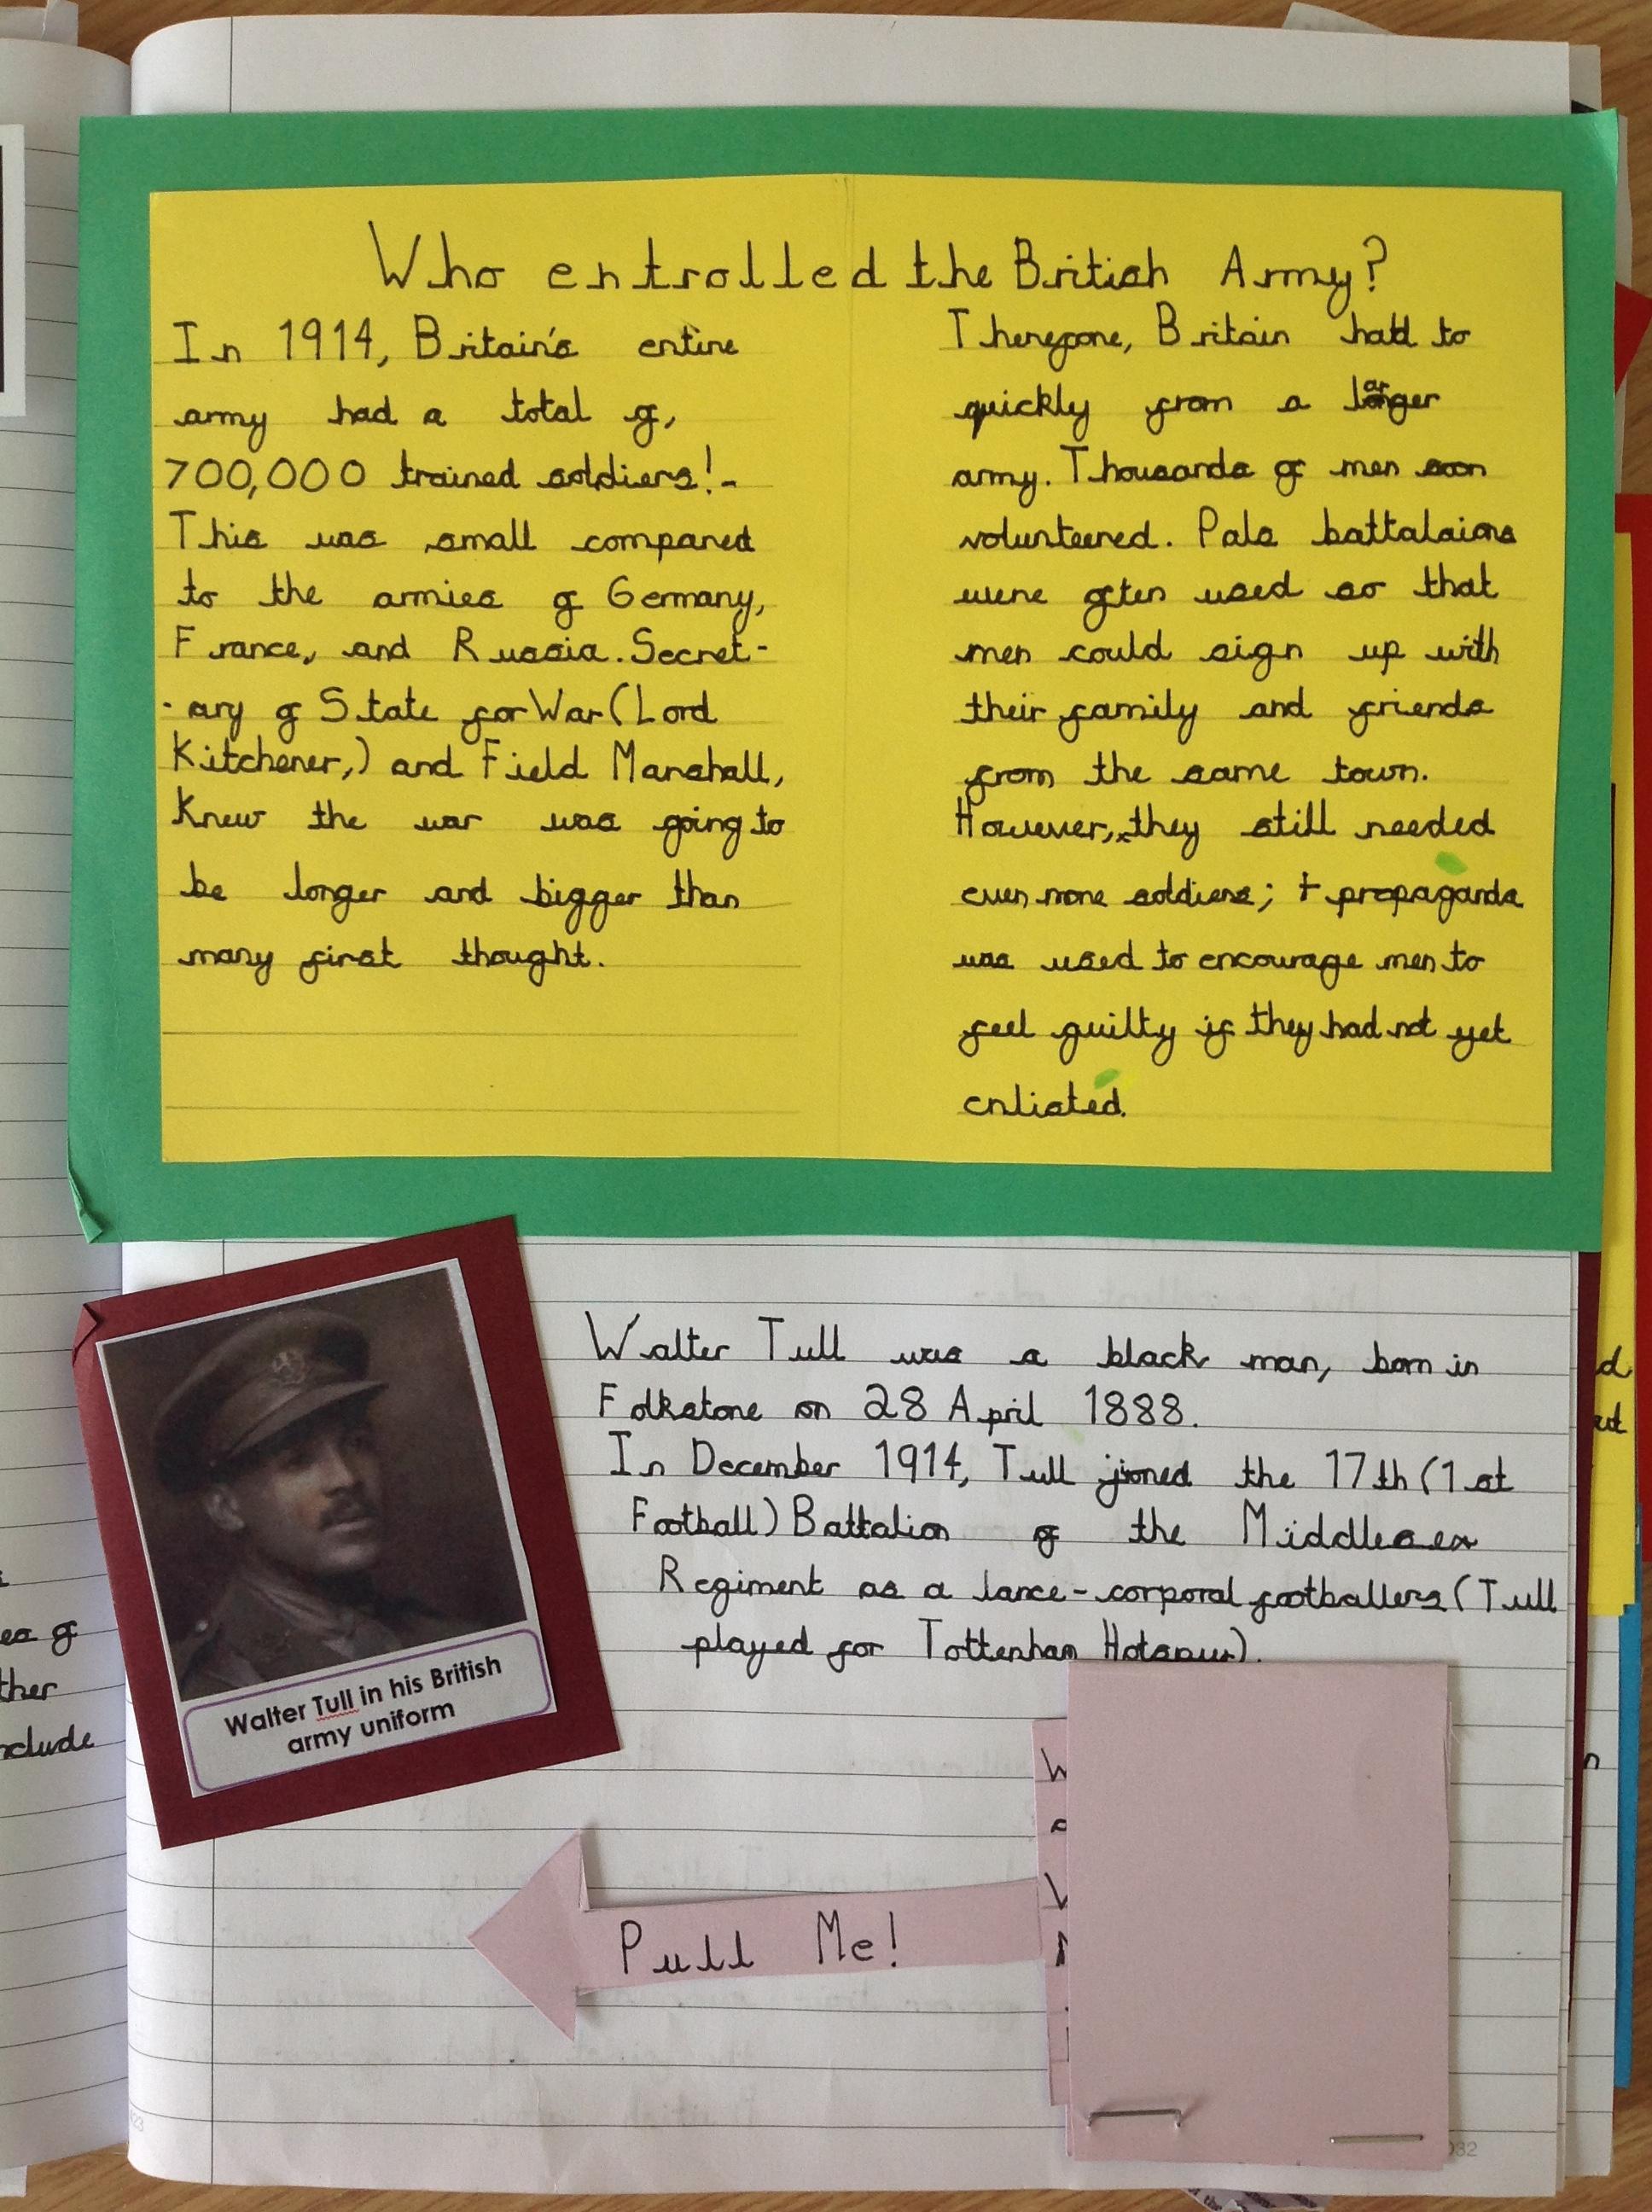 Who entrolled the British Army?
In 1914, Britain's entire
army had a total of,
700,000 trained soldiers!-
This was small compared
to the armies of Germany,
France, and Russia. Secret-
-ary of State for War (Lord
Kitchener,) and Field Marshall,
Knew the war was going to
be longer and bigger than
many first thought.
Therefore, Britain had to
quickly from a larger
army. Thousands of men soon
volunteered. Pals battalaions
were often used so that
men could sign up with
their family and friends
from the same town.
However, they still needed
even more soldiers; propaganda
was used to encourage men to
feel guilty if they had not yet
enlisted.
Walter Tull was a black man, born in
Folkstone on 28 April 1888.
In December 1914, Tull jioned the 17th (1st
Football) Battalion of the Middlesex
Regiment as a lance-corporal footballers (Tull
played for Tottenham Hotspur).
Walter Tull in his British
army uniform
Pull Me!
es of
ther
nclude